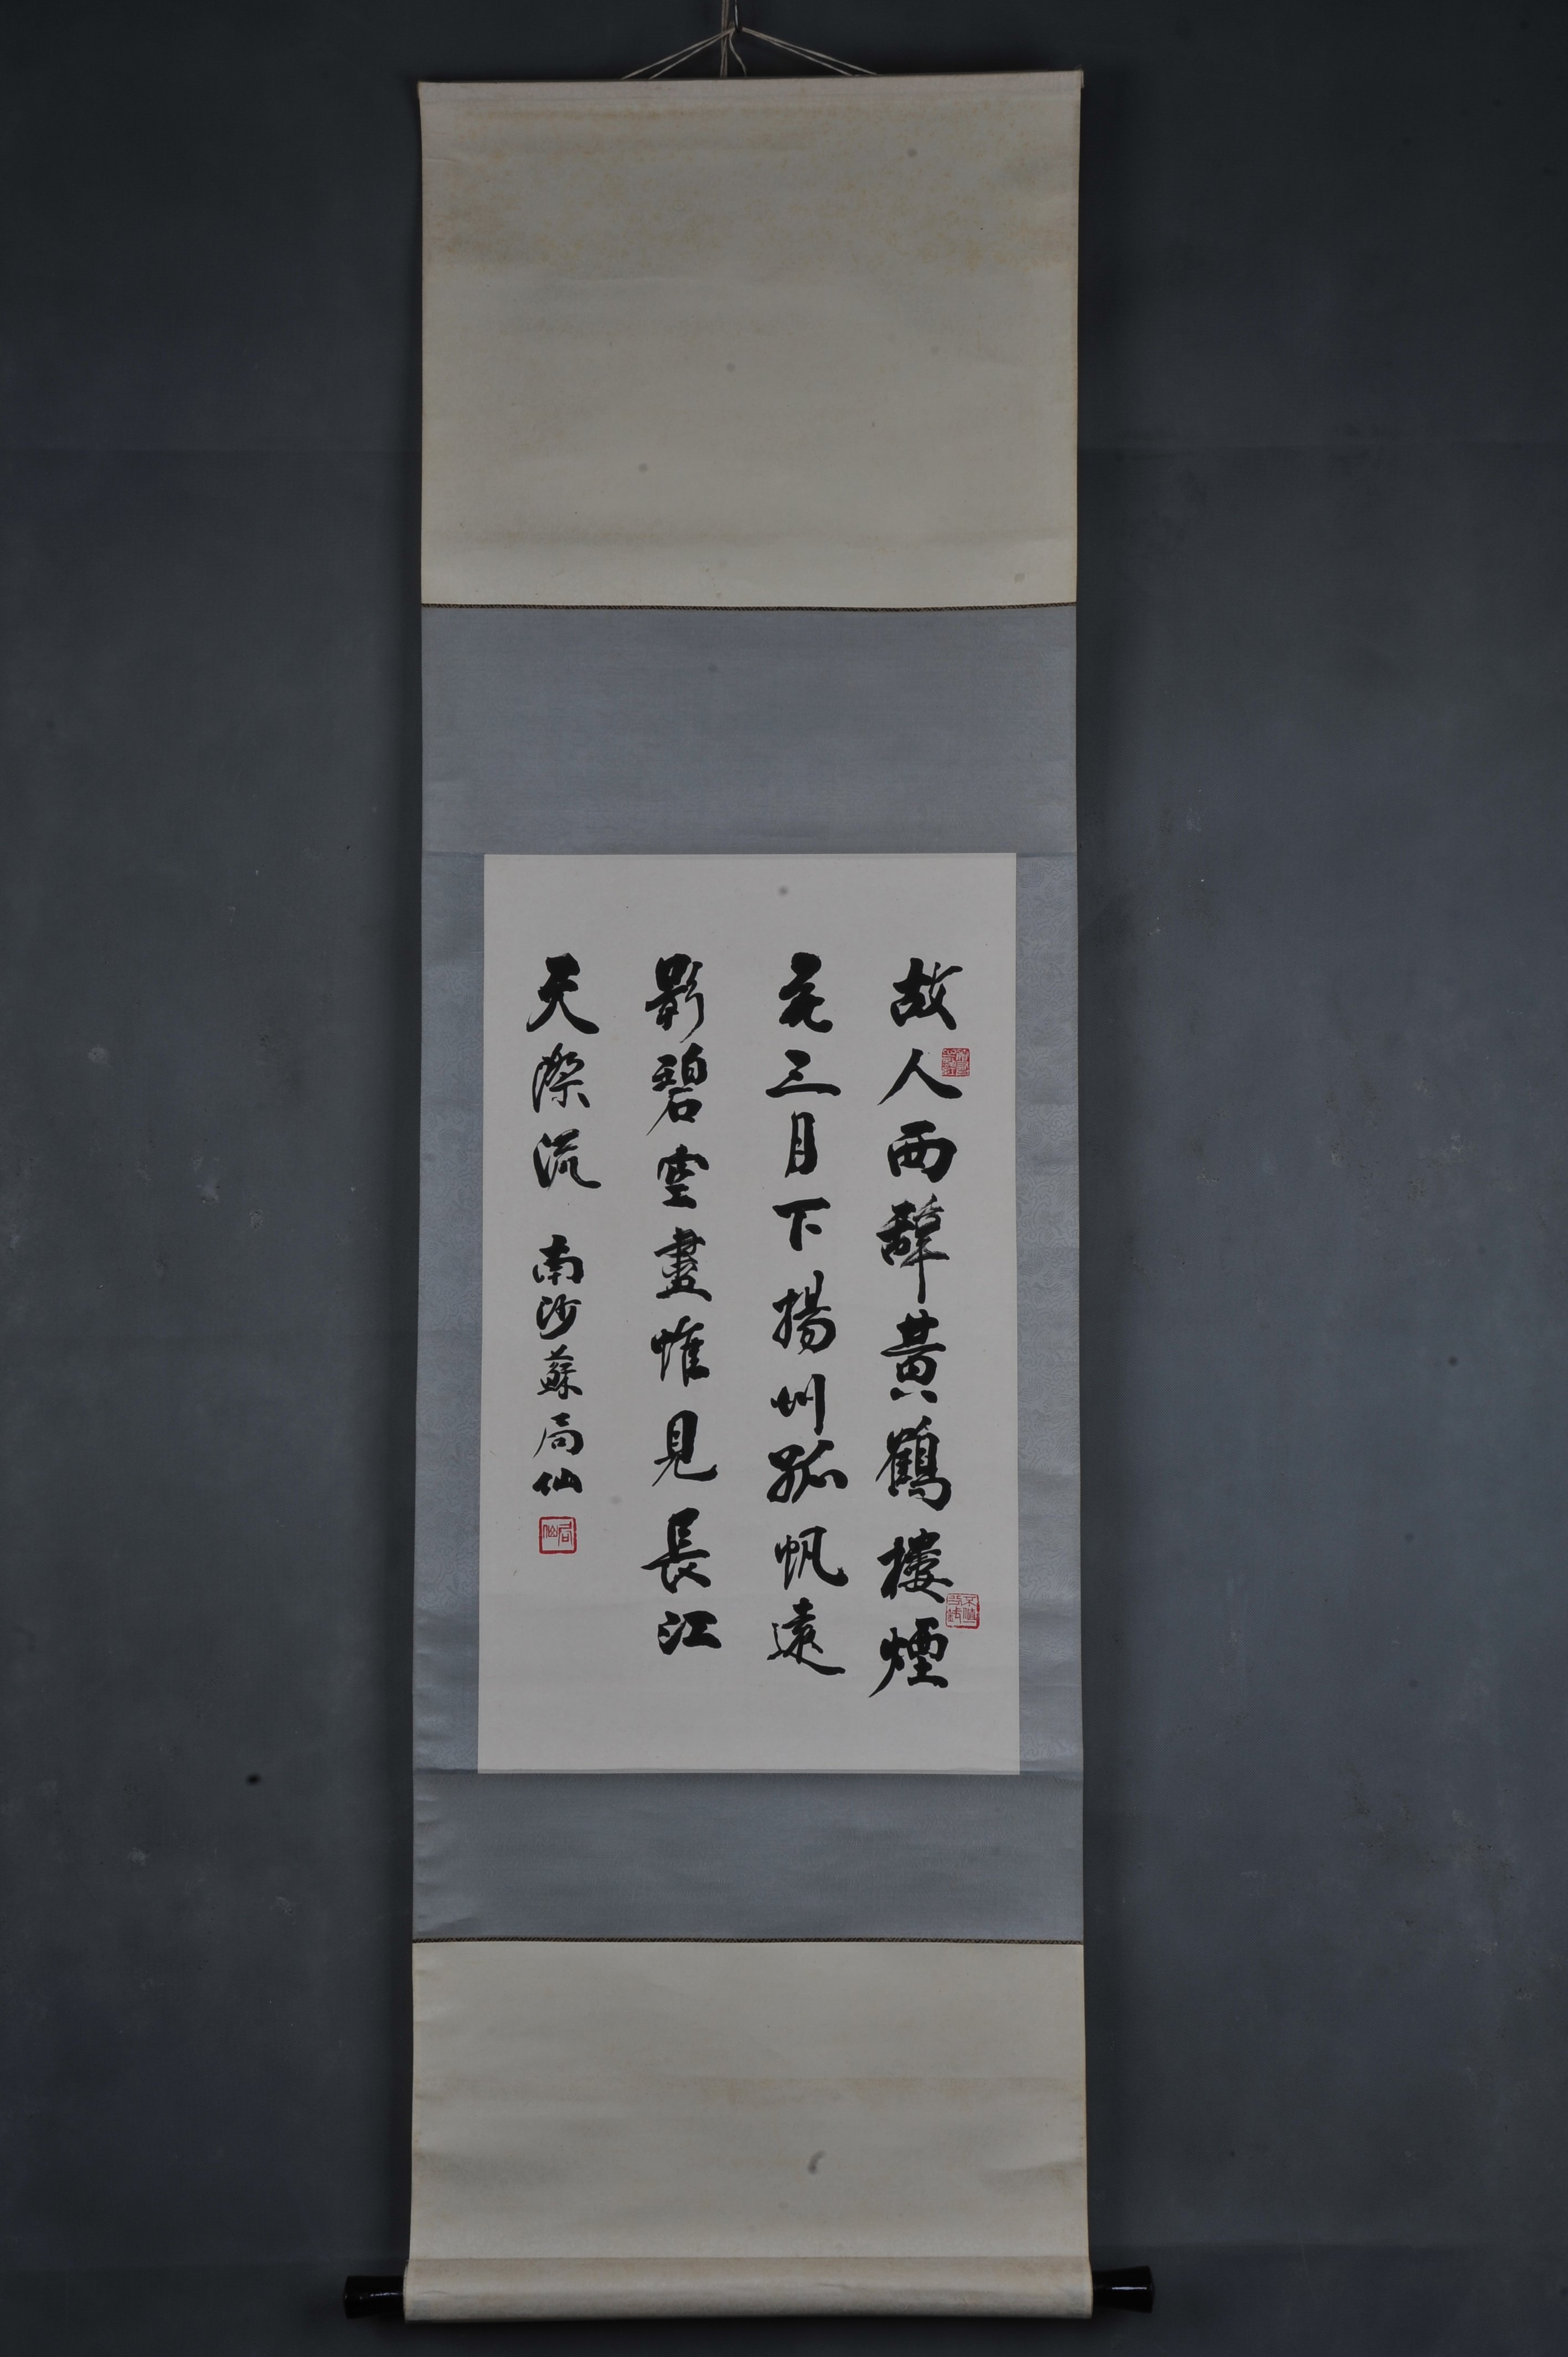 故人西辭黃鶴樓煙
花三月下揚州孤帆遠
影碧空盡惟見長江
天際流 南沙蘇局仙
局仙